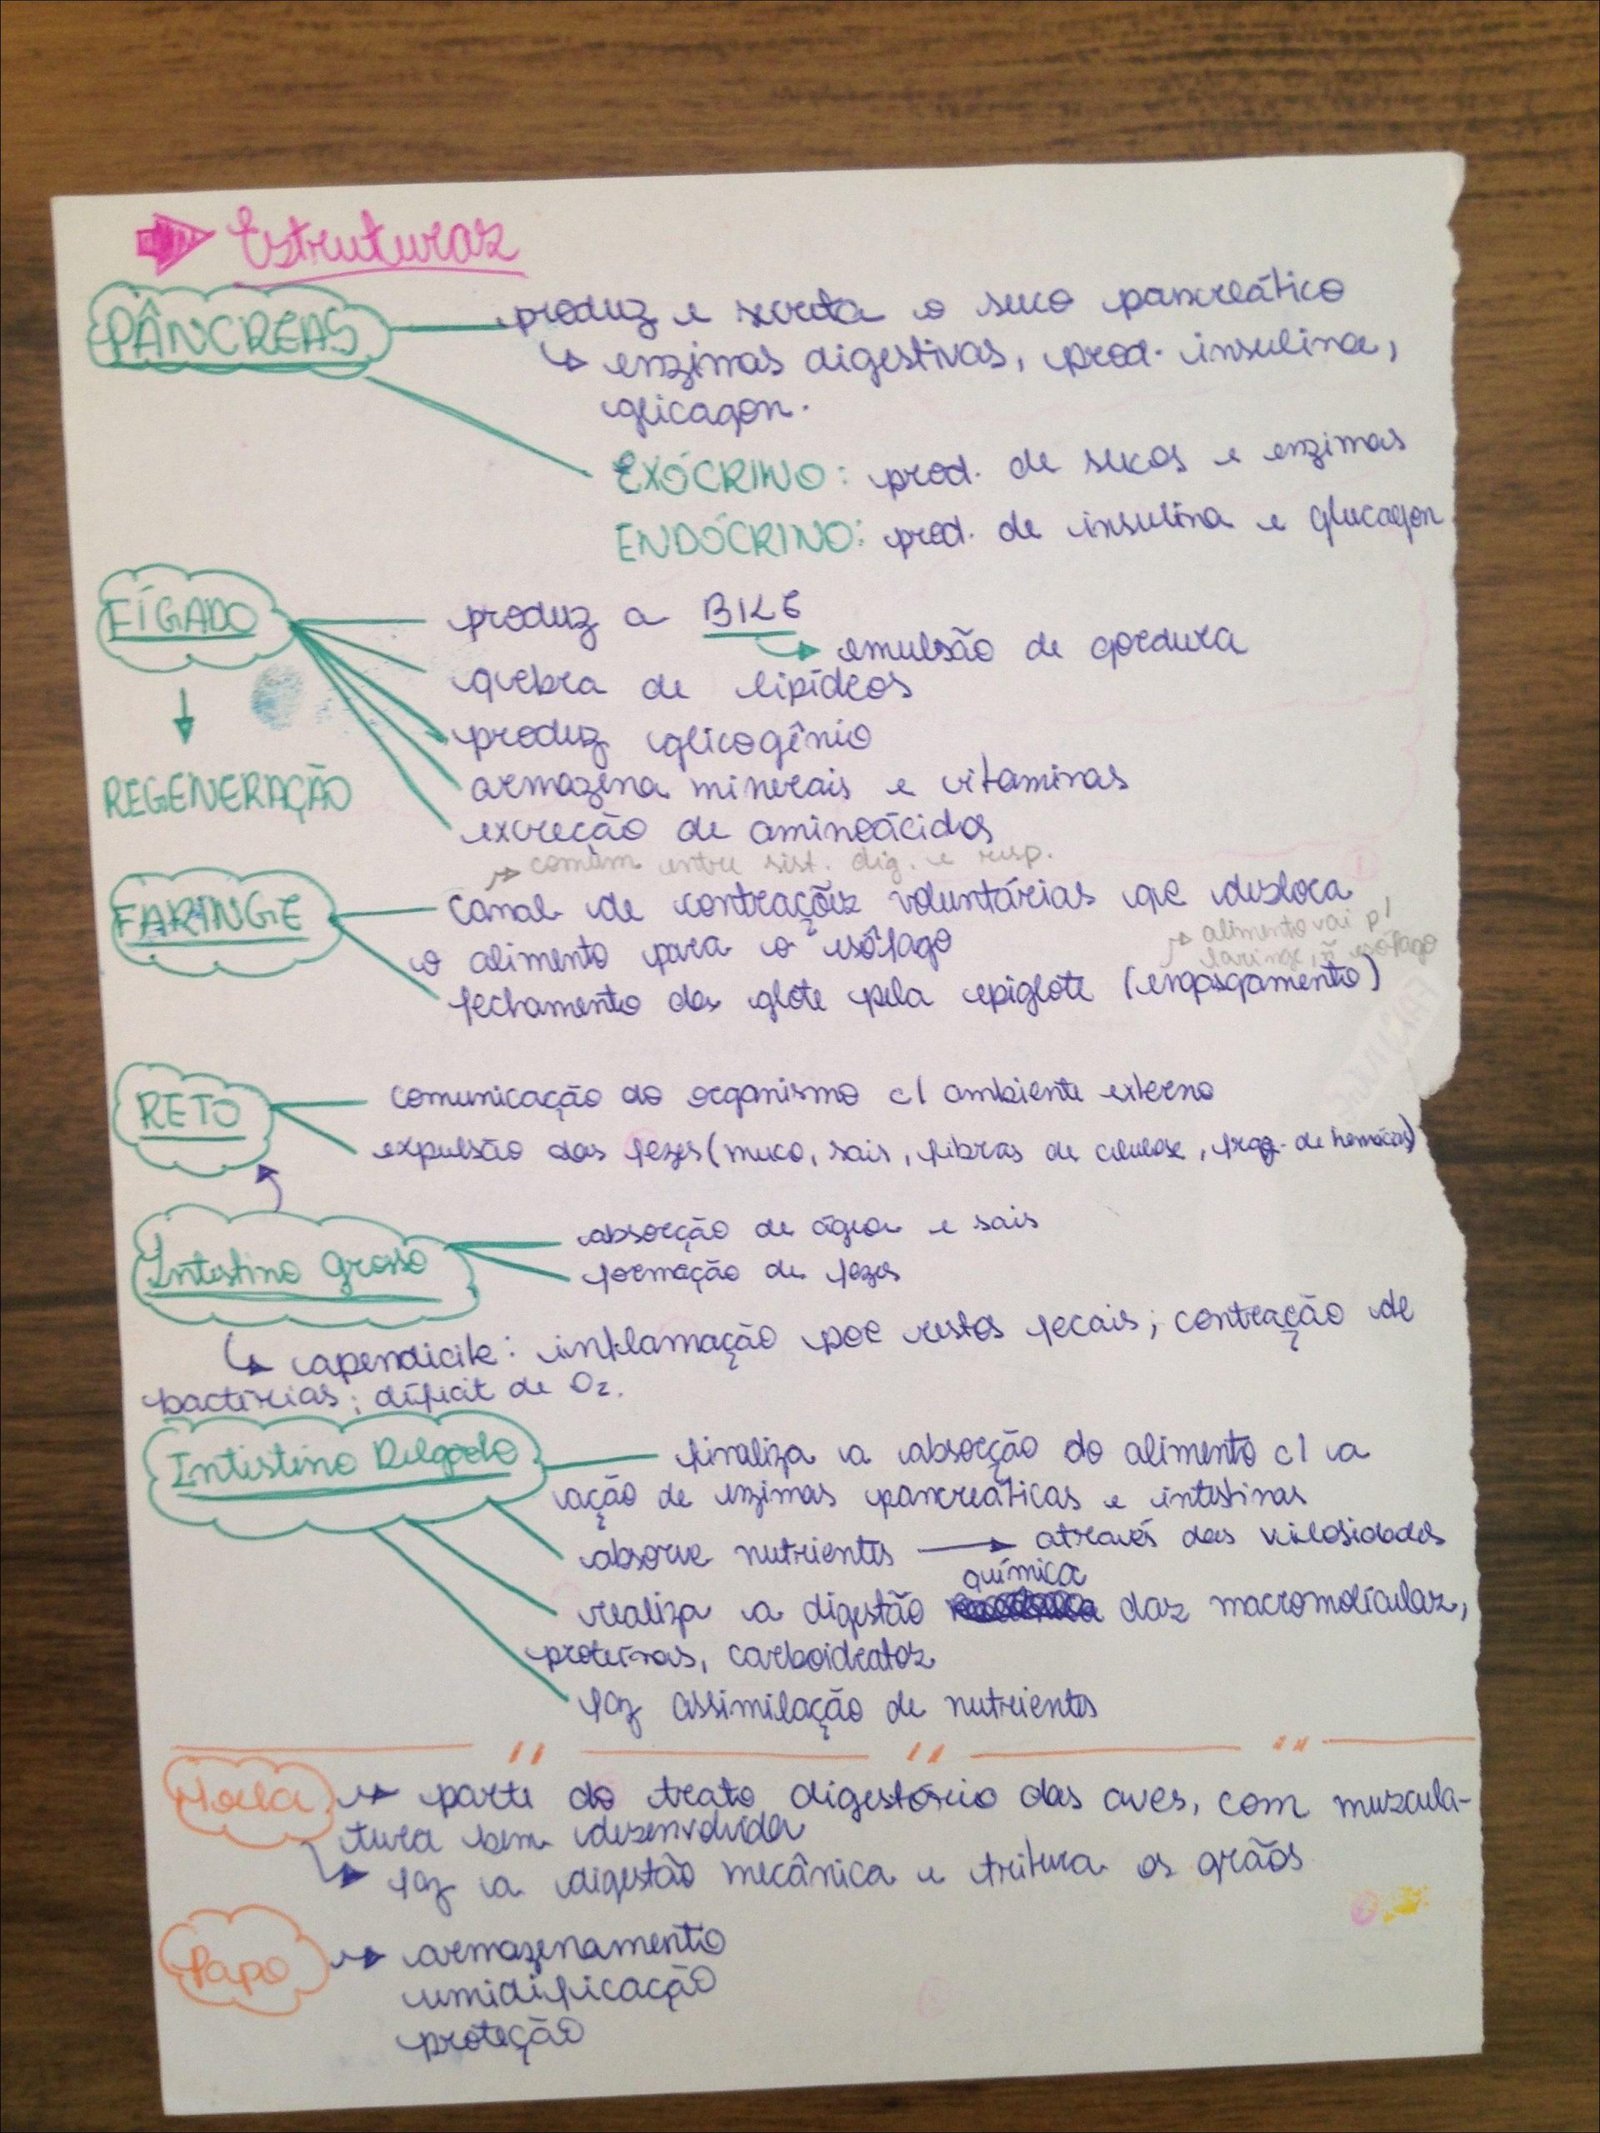 Estruturas
PÂNCREAS
produz e secreta o suco pancreático
enzimas digestivas, prod. insulina,
glicagon.
EXÓCRINO: prod. de sucos e enzimas
ENDÓCRINO: prod. de insulina e glucagon
FÍGADO
produz a BILE
emulsão de gordura
quebra de lipídeos
produz glicogênio
armazena minerais e vitaminas
REGENERAÇÃO
excreção de aminoácidos
comum entre sist. dig. e resp.
FARINGE
canal de contrações voluntárias que desloca
o alimento para o esôfago
alimento vai p/
laringe, ñ esôfago
fechamento da glote pela epiglote (engasgamento)
RETO
comunicação do organismo c/ ambiente externo
expulsão das fezes (muco, sais, fibras de celulose, frag. de hemácias)
Intestino Grosso
absorção de água e sais
formação de fezes
apendicite: inflamação por restos fecais; contração de
bactérias; déficit de O2.
Intistino Delgado
finaliza a absorção do alimento c/ a
ação de enzimas pancreáticas e intestinas
absorve nutrientes → através das vilosidades
química
realiza a digestão das macromoléculas,
proteínas, carboidratos
faz assimilação de nutrientes
Moela
parte do trato digestório das aves, com muscula-
tura bem desenvolvida
faz a digestão mecânica e tritura os grãos
Papo
armazenamento
umidificação
proteção